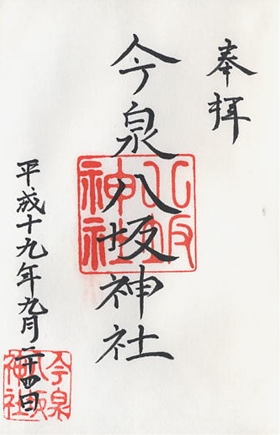 奉拝
今泉八坂神社
平成十九年九月二十四日
八坂神社
今泉八坂神社